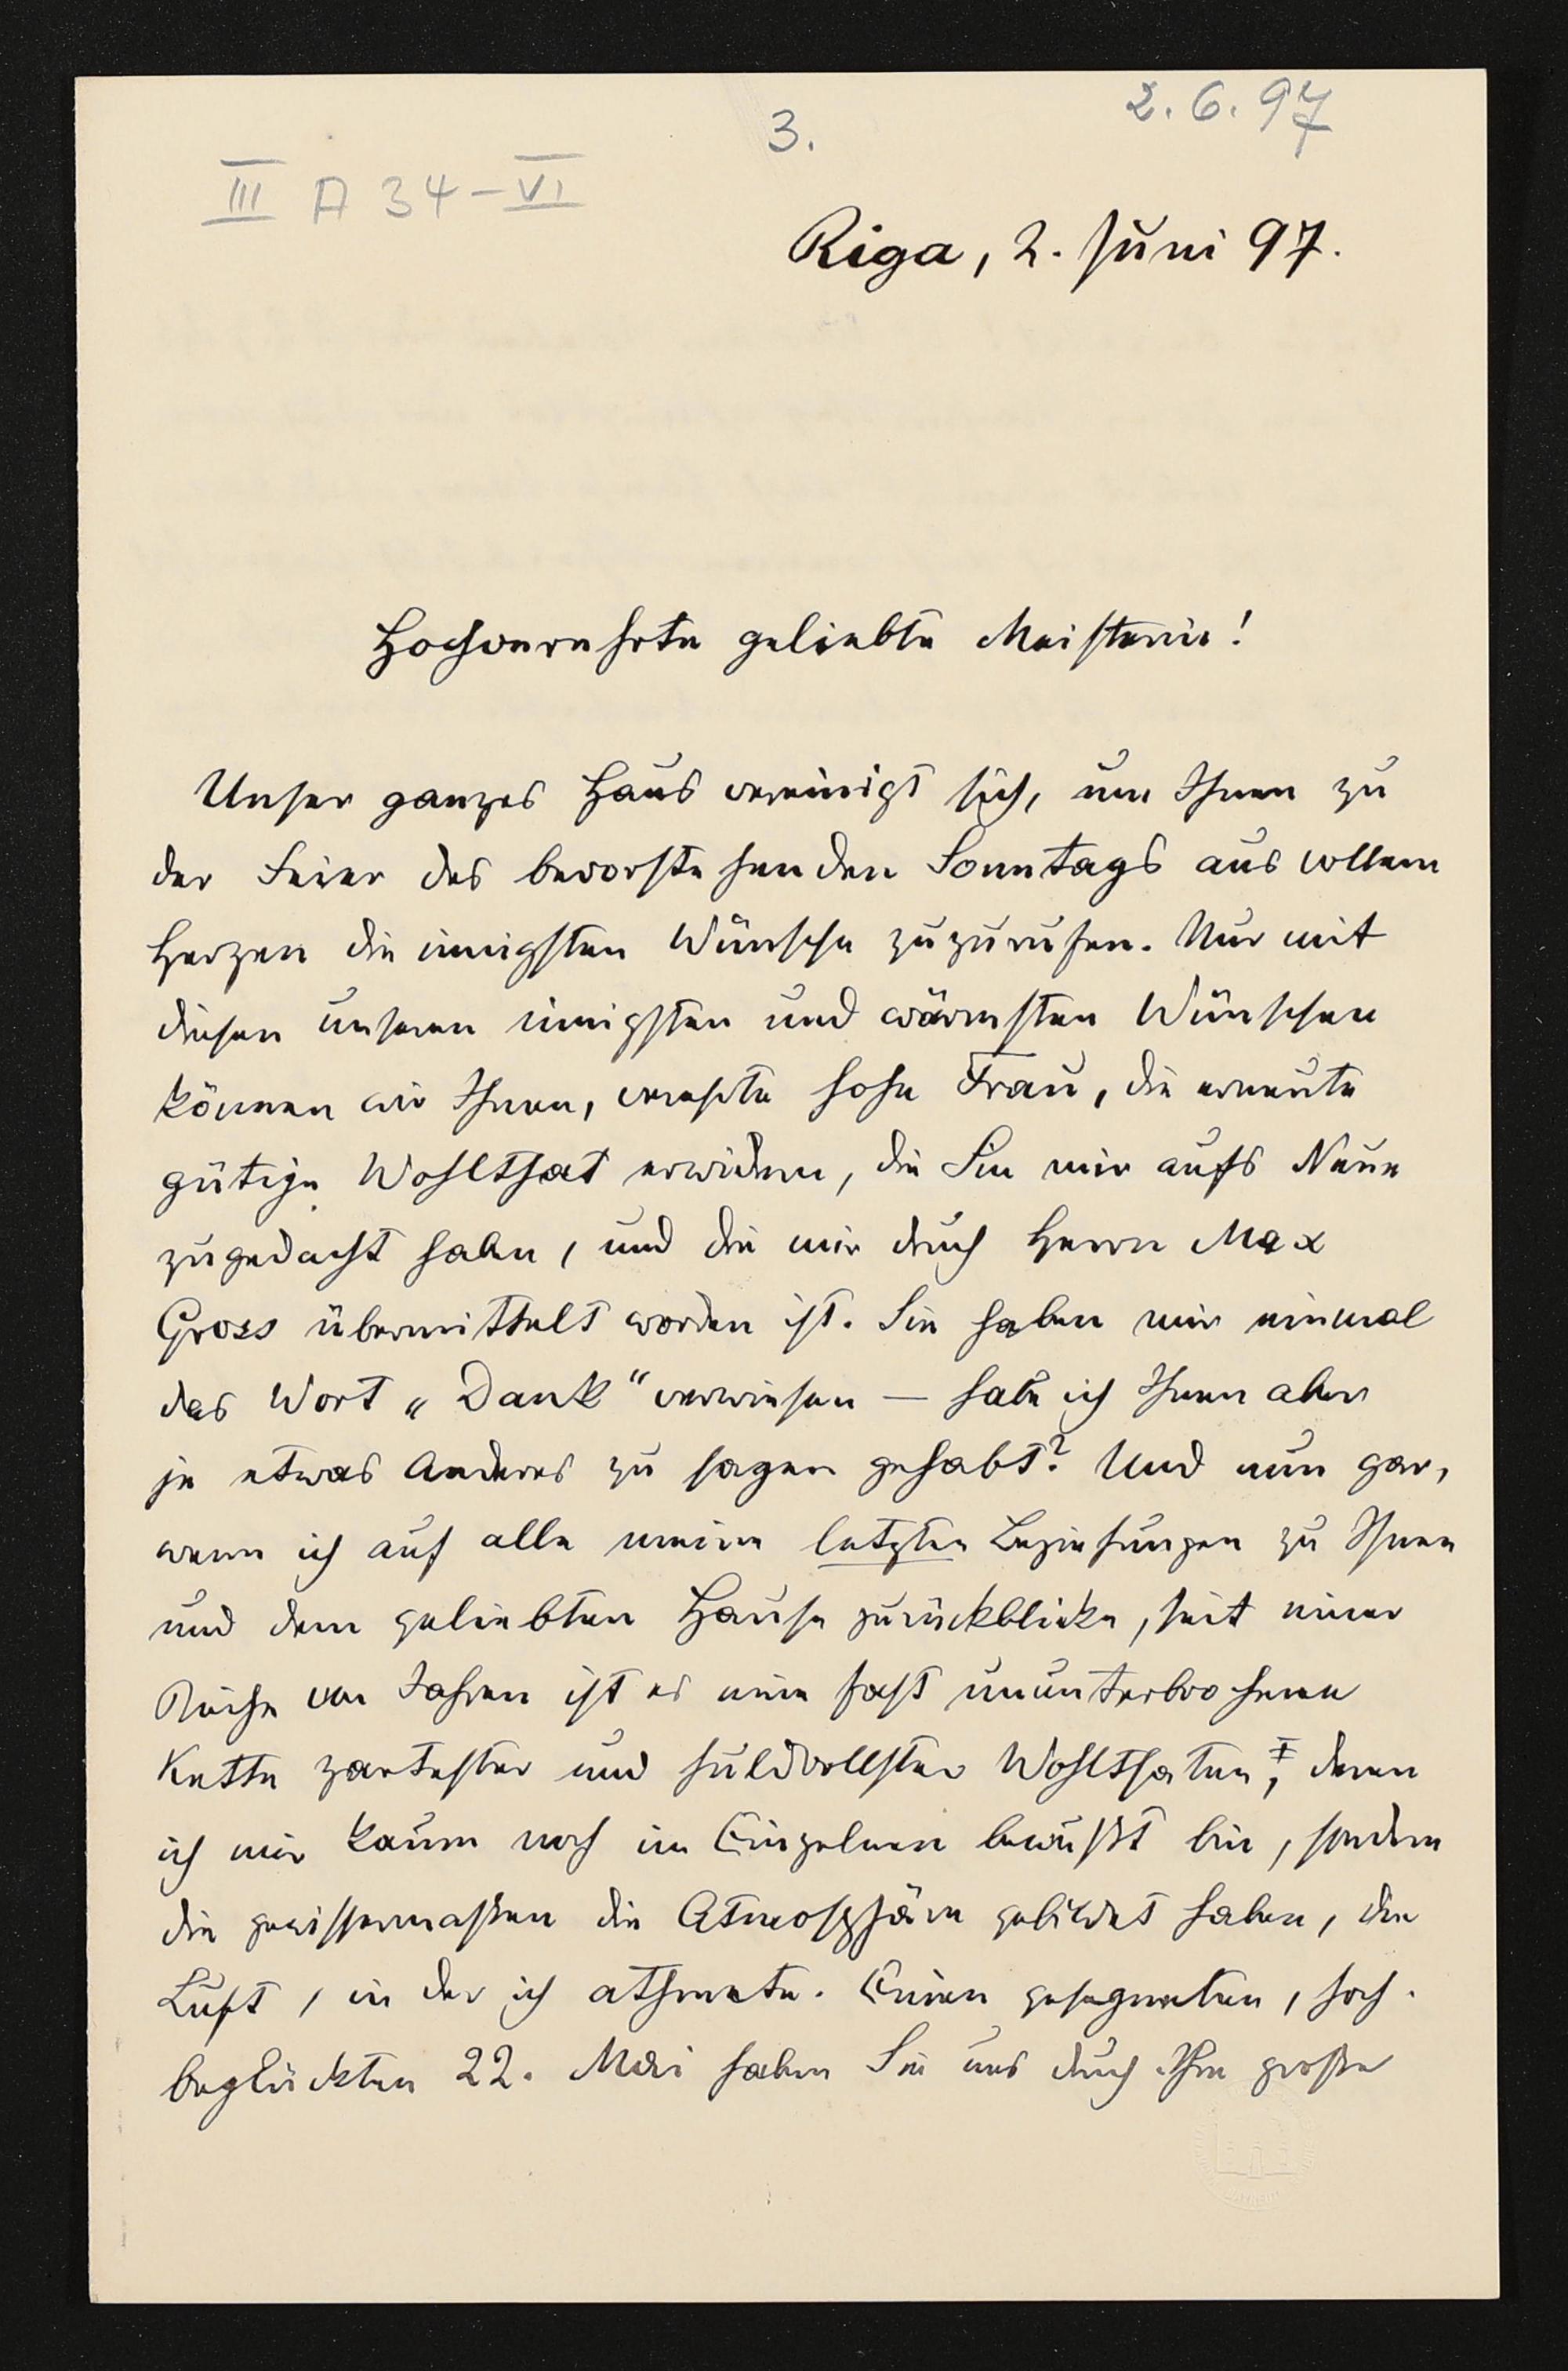 2. 6. 97
3.
III A 34 – VI
Riga, 2. Juni 97.
Hochverehrte geliebte Meisterin!
Unser ganzes Haus vereinigt sich, um Ihnen zu
der Feier des bevorstehenden Sonntags aus vollem
Herzen die innigsten Wünsche zuzurufen. Nur mit
diesen unseren innigsten und wärmsten Wünschen
können wir Ihnen, verehrte hohe Frau, die erneute
gütige Wohlthat erwidern, die Sie mir aufs Neue
zugedacht haben, und die mir durch Herrn Max
Gross übermittelt worden ist. Sie haben mir einmal
das Wort „Dank“ verwiesen — habe ich Ihnen aber
je etwas Anderes zu sagen gehabt? Und nun gar,
wenn ich auf alle meine letzten Beziehungen zu Ihnen
und dem geliebten Hause zurückblicke, seit einer
Reihe von Jahren ist es eine fast ununterbrochene
Kette zartester und huldvollster Wohlthaten, deren
ich mir kaum noch im Einzelnen bewußt bin, sondern
die gewissermaßen die Atmosphäre gebildet haben, die
Luft, in der ich athmete. Einen gesegneten, hoch-
beglückten 22. Mai haben Sie uns durch Ihre große